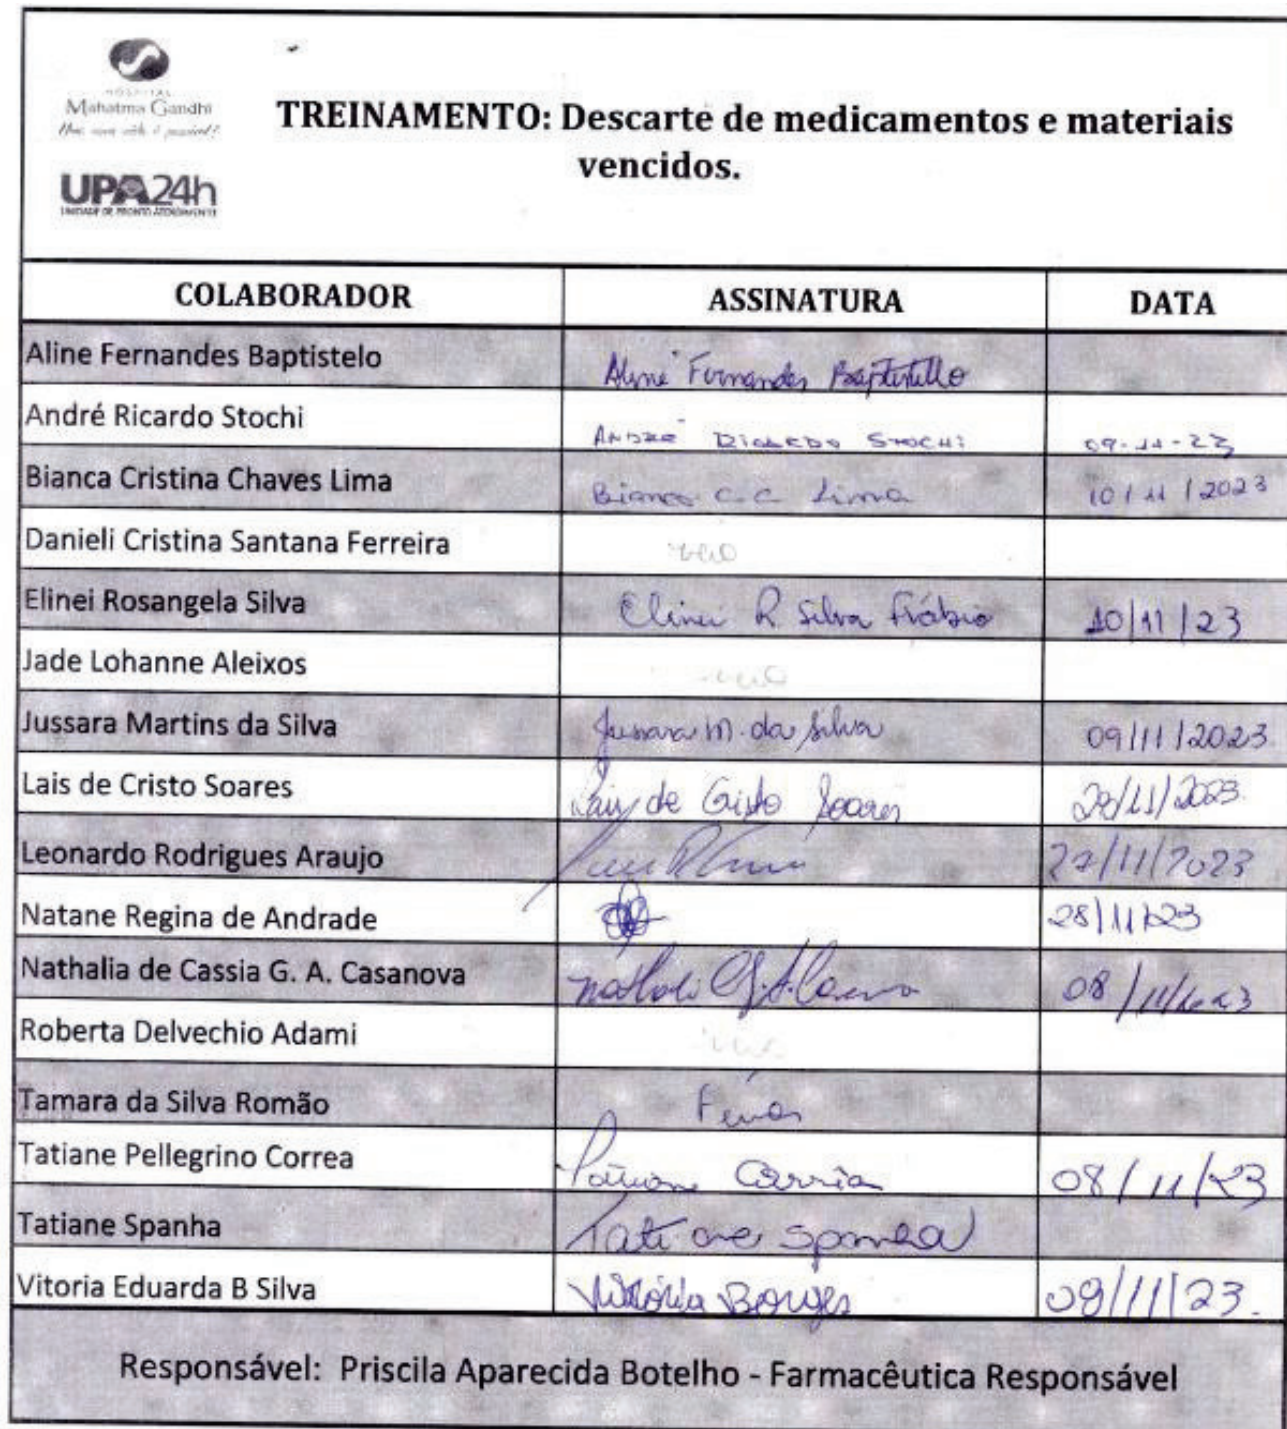 HOSPITAL
Mahatma Gandhi
UPA24h
UNIDADE DE PRONTO ATENDIMENTO
TREINAMENTO: Descarte de medicamentos e materiais
vencidos.
COLABORADOR ASSINATURA DATA
Aline Fernandes Baptistelo Aline Fernandes Baptistello
André Ricardo Stochi ANDRÉ RICARDO STOCHI 09-11-23
Bianca Cristina Chaves Lima Bianca C. C. Lima 10/11/2023
Danieli Cristina Santana Ferreira
Elinei Rosangela Silva Elinei R Silva Frábio 10/11/23
Jade Lohanne Aleixos
Jussara Martins da Silva Jussara M. da Silva 09/11/2023
Lais de Cristo Soares Lais de Cristo Soares 29/11/2023
Leonardo Rodrigues Araujo 27/11/2023
Natane Regina de Andrade 28/11/23
Nathalia de Cassia G. A. Casanova 08/11/2023
Roberta Delvechio Adami
Tamara da Silva Romão Férias
Tatiane Pellegrino Correa Tatiane Corrêa 08/11/23
Tatiane Spanha Tatiane Spanha
Vitoria Eduarda B Silva Vitória Borges 09/11/23.
Responsável: Priscila Aparecida Botelho - Farmacêutica Responsável